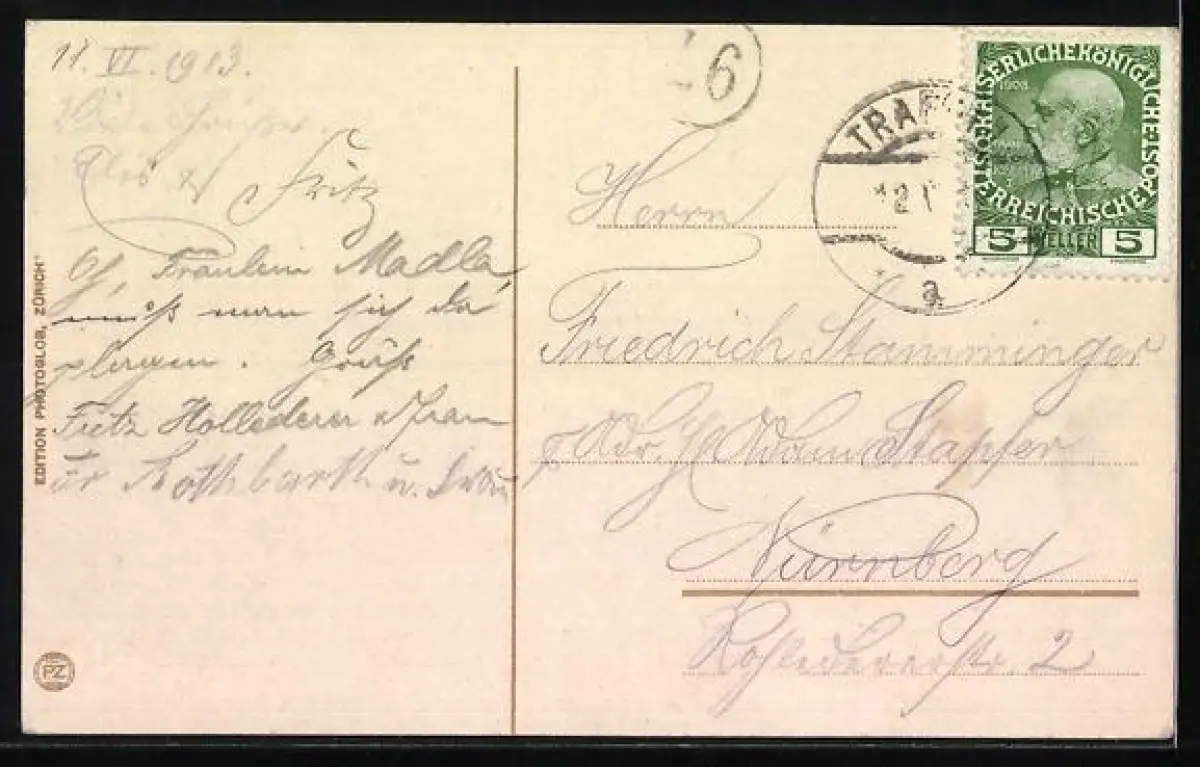 11. VI. 1913.
Fritz
Oh, Fräulein Madla,
muß man sich da
plagen. Gruß
Fritz Hollederer u Frau
Fr Rothbarth u. Frau
EDITION PHOTOGLOB, ZÜRICH
PZ
6
TRAF
12
a
KAISERLICHE KÖNIGLICHE
ÖSTERREICHISCHE POST
1908
5 HELLER 5
Herrn
Friedrich Stamminger
Adr. H Adam Stapfer
Nürnberg
2